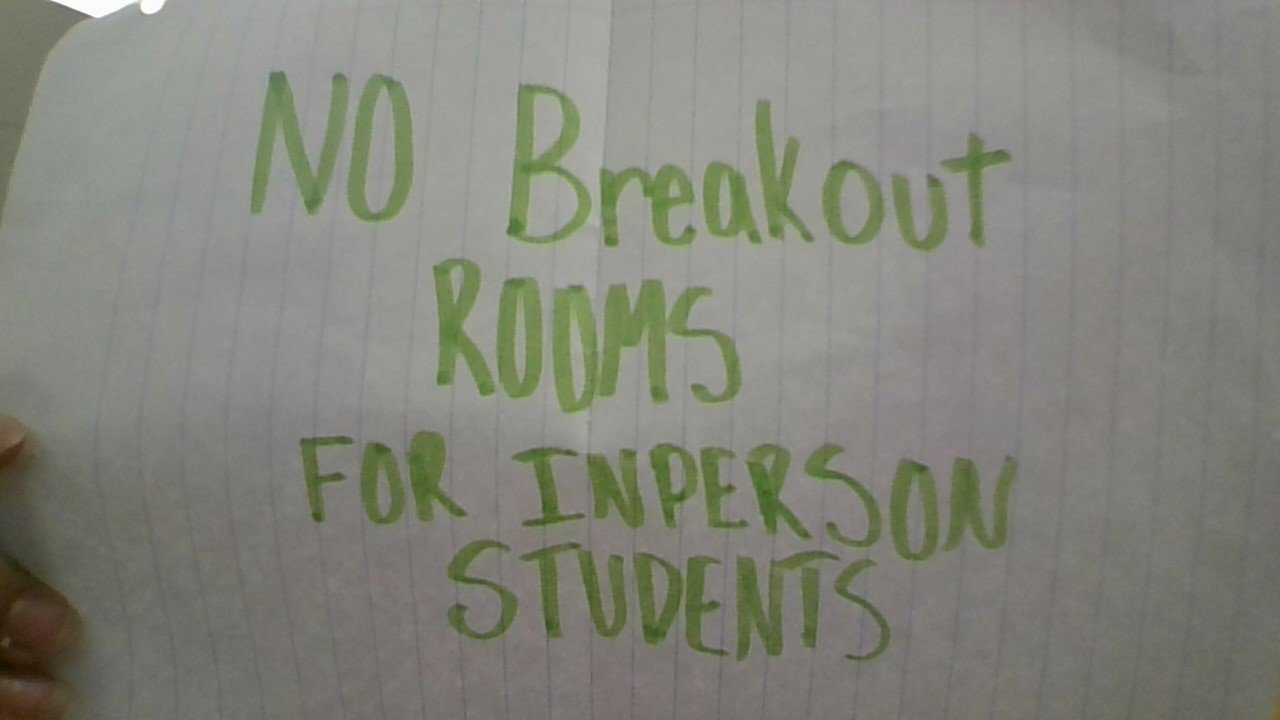 NO Breakout
ROOMS
FOR INPERSON
STUDENTS